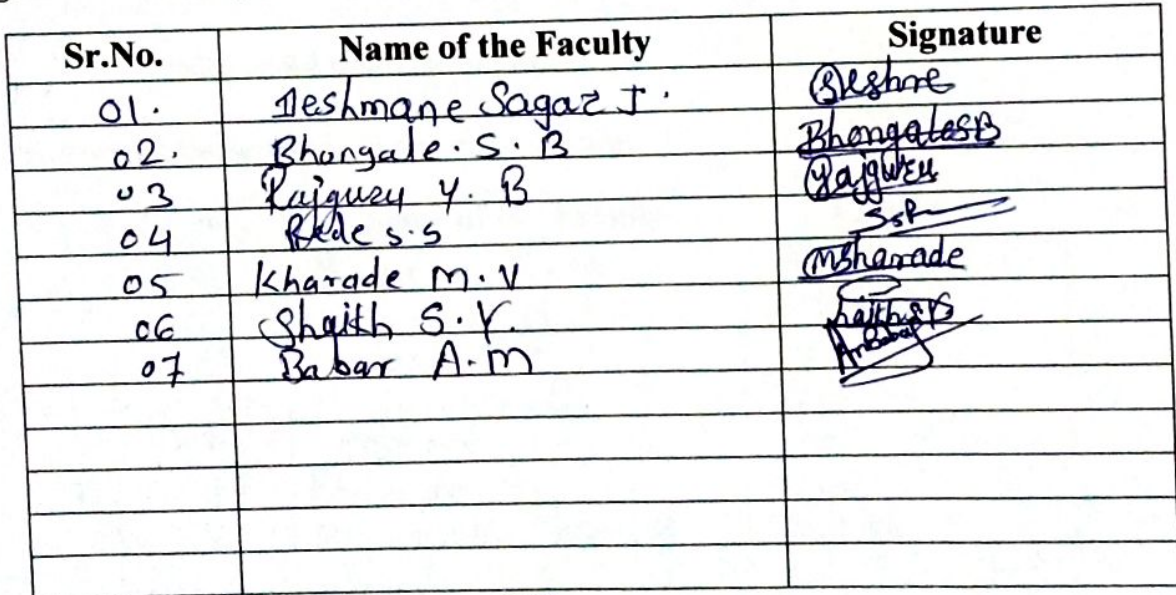 Sr.No. Name of the Faculty Signature
01. Deshmane Sagar J.
02. Bhongale. S. B BhongaleSB
03 Rajguru Y. B Rajguru
04 Rede S.S
05 Kharade M.V Kharade
06 Shaikh S.Y.
07 Babar A.M